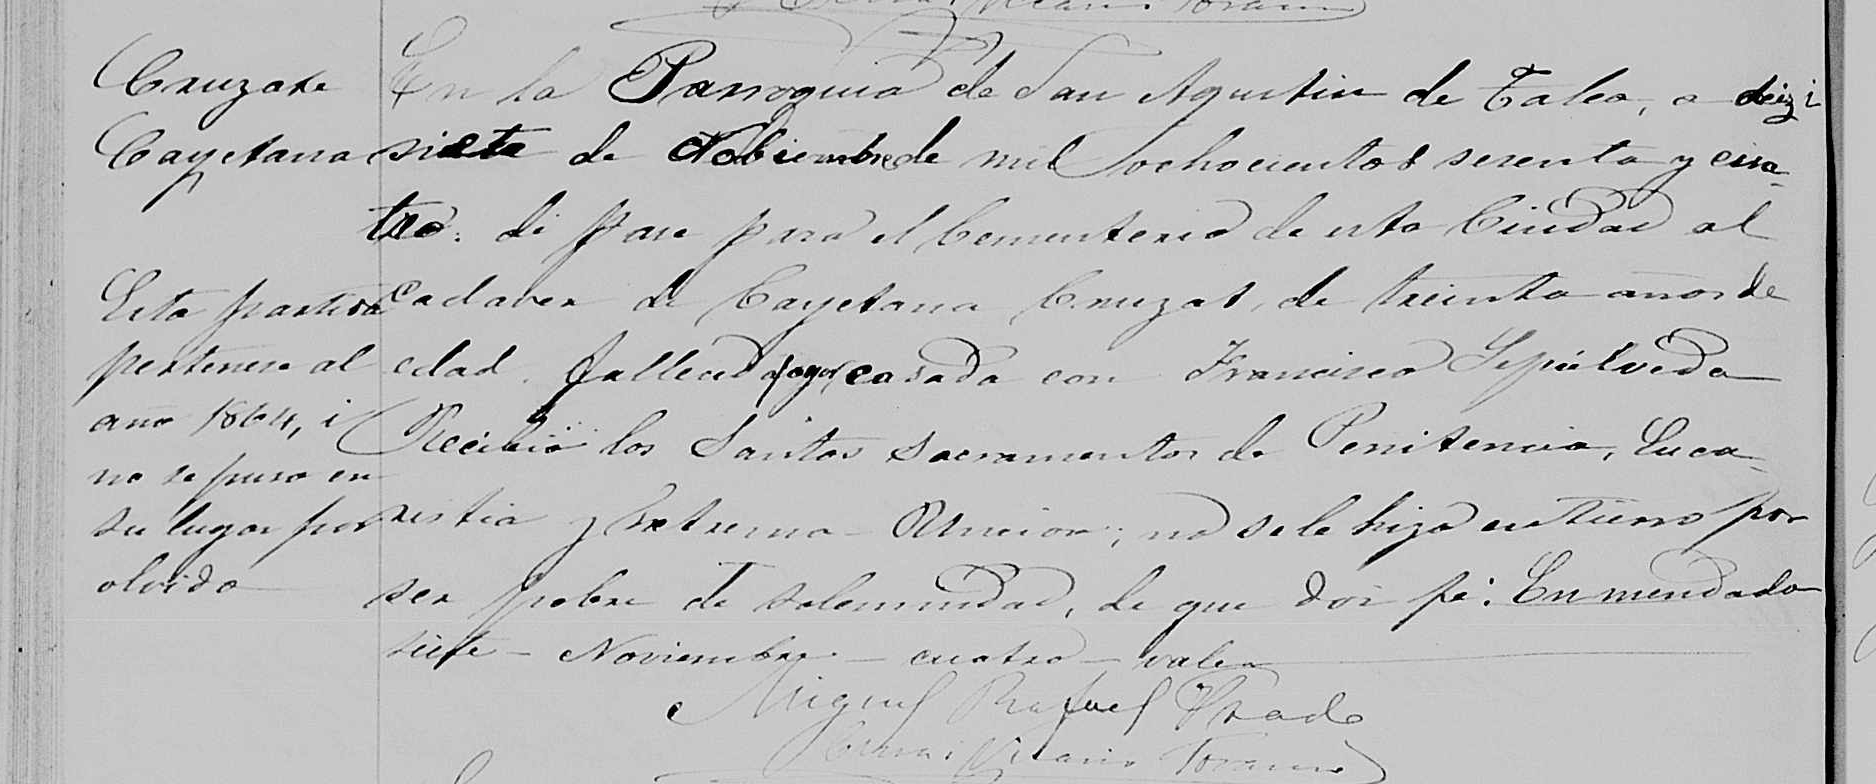 Cruzate
Cayetana
Esta partida
pertenese al
año 1864, i
no se puso en
su lugar por
olvido
En la Parroquia de San Agustin de Talca, a diez i
siete de Nobiembre de mil ochocientos sesenta y cua-
tro. di pase para el Cementerio de esta Ciudad al
cadaver de Cayetana Cruzat, de treinta años de
edad. fallecio casada con Francisco Sepúlveda
Recibió los Santos Sacramentos de Penitencia, Euca-
ristia y Extrema-Uncion; no se le hizo entierro por
ser pobre de solemnidad, de que doi fé. Enmendado
siete - Noviembre - cuatro - vale
Miguel Rafael Prado
Cura i Vicario Foraneo